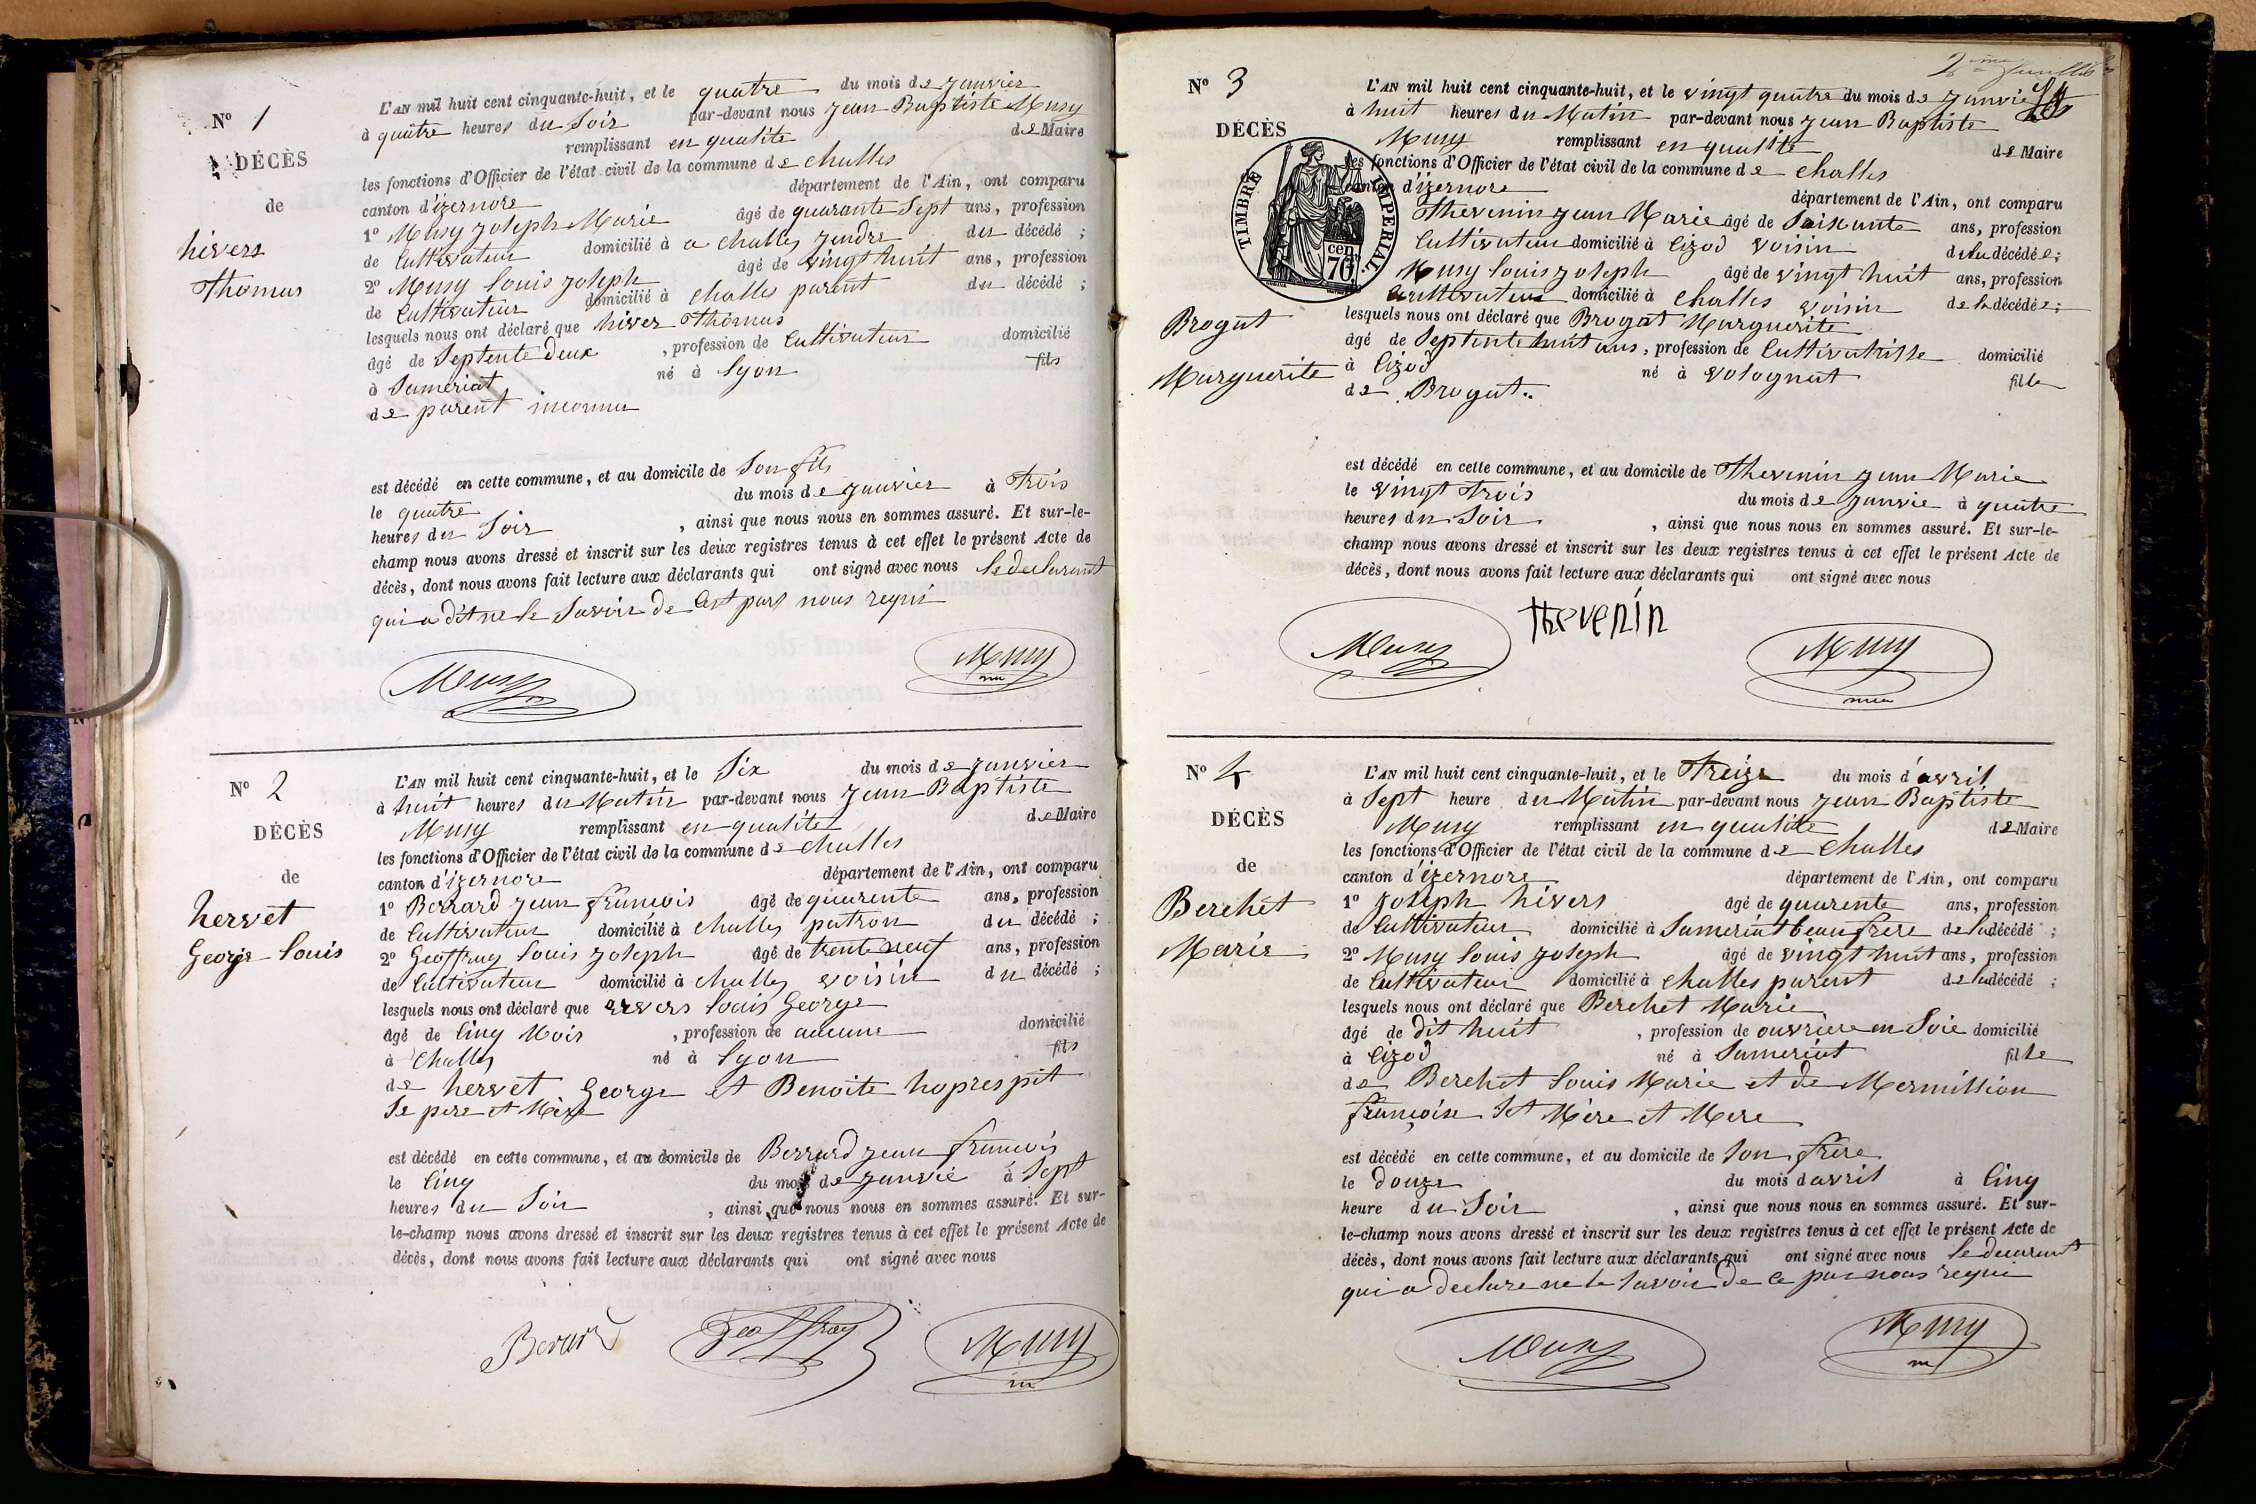 N° 1
DÉCÈS
de
hivers
Thomas
L'AN mil huit cent cinquante-huit, et le quatre du mois de janvier
à quatre heures du Soir par-devant nous jean Baptiste Musy
remplissant en qualité de Maire
les fonctions d'Officier de l'état civil de la commune de challes
canton d'izernore département de l'Ain, ont comparu
1° Musy joseph Marie âgé de quarante Sept ans, profession
de Cultivateur domicilié à a challes gendre du décédé ;
2° Musy Louis joseph âgé de vingt huit ans, profession
de Cultivateur domicilié à challes parent du décédé ;
lesquels nous ont déclaré que hiver Thomas
âgé de Septente deux , profession de Cultivateur domicilié
à Samériat né à Lyon fils
de parent inconnu
est décédé en cette commune, et au domicile de Son fils
le quatre du mois de janvier à Trois
heures du Soir , ainsi que nous nous en sommes assuré. Et sur-le-
champ nous avons dressé et inscrit sur les deux registres tenus à cet effet le présent Acte de
décès, dont nous avons fait lecture aux déclarants qui ont signé avec nous le declarant
qui a dit ne le Savoir de Cest pars nous requi
Musy Musy
N° 2
DÉCÈS
de
hervet
George Louis
L'AN mil huit cent cinquante-huit, et le Six du mois de janvier
à huit heures du Matin par-devant nous jean Baptiste
Musy remplissant en qualité de Maire
les fonctions d'Officier de l'état civil de la commune de challes
canton d'izernore département de l'Ain, ont comparu
1° Berrard jean francois âgé de quarente ans, profession
de Cultivateur domicilié à challes patron du décédé ;
2° Geoffray Louis joseph âgé de trente neuf ans, profession
de Cultivateur domicilié à challes voisin du décédé ;
lesquels nous ont déclaré que ervers Louis George
âgé de Cinq Mois , profession de aucune domicilié
à Challes né à Lyon fils
de hervet George et Benoite hoprespit
Se pere et Mere
est décédé en cette commune, et au domicile de Berrard jean francois
le Cinq du mois de janvié à Sept
heures du Soir , ainsi que nous nous en sommes assuré. Et sur-
le-champ nous avons dressé et inscrit sur les deux registres tenus à cet effet le présent Acte de
décès, dont nous avons fait lecture aux déclarants qui ont signé avec nous
Berard Geoffray Musy
2ème feuillet
N° 3
DÉCÈS
TIMBRE IMPERIAL
70 cen
Brogat
Marguerite
L'AN mil huit cent cinquante-huit, et le vingt quatre du mois de janvié
à huit heures du Matin par-devant nous jean Baptiste
Musy remplissant en qualité de Maire
les fonctions d'Officier de l'état civil de la commune de challes
canton d'izernore département de l'Ain, ont comparu
Thevenin jean Marie âgé de Soixante ans, profession
Cultivateur domicilié à Cizod voisin de la décédée ;
Musy Louis joseph âgé de vingt huit ans, profession
Cultivateur domicilié à Challes voisin de la décédée ;
lesquels nous ont déclaré que Brogat Marguerite
âgé de Septente huit ans, profession de Cultivatrisse domicilié
à Cizod né à volognat fille
de Brogat..
est décédé en cette commune, et au domicile de Thevenin jean Marie
le vingt Trois du mois de janvie à quatre
heures du Soir , ainsi que nous nous en sommes assuré. Et sur-le-
champ nous avons dressé et inscrit sur les deux registres tenus à cet effet le présent Acte de
décès, dont nous avons fait lecture aux déclarants qui ont signé avec nous
Musy thevenin Musy
N° 4
DÉCÈS
de
Berchet
Marie
L'AN mil huit cent cinquante-huit, et le Treize du mois d'avril
à Sept heure du Matin par-devant nous jean Baptiste
Musy remplissant en qualité de Maire
les fonctions d'Officier de l'état civil de la commune de Challes
canton d'izernore département de l'Ain, ont comparu
1° joseph hivers âgé de quarente ans, profession
de Cultivateur domicilié à Sameriat beau frere de la décédé ;
2° Musy Louis joseph âgé de vingt huit ans, profession
de Cultivateur domicilié à Challes parent de la décédé ;
lesquels nous ont déclaré que Berchet Marie
âgé de dit huit , profession de ouvriere en Soie domicilié
à Cizod né à Sameriat fille
de Berchet Louis Marie et de Mermillion
françoise Set Mère et Mere
est décédé en cette commune, et au domicile de Son frère
le douze du mois d'avril à Cinq
heure du Soir , ainsi que nous nous en sommes assuré. Et sur-
le-champ nous avons dressé et inscrit sur les deux registres tenus à cet effet le présent Acte de
décès, dont nous avons fait lecture aux déclarants qui ont signé avec nous le decarant
qui a declare ne le Savoir de Ce par nous requi
Musy Musy